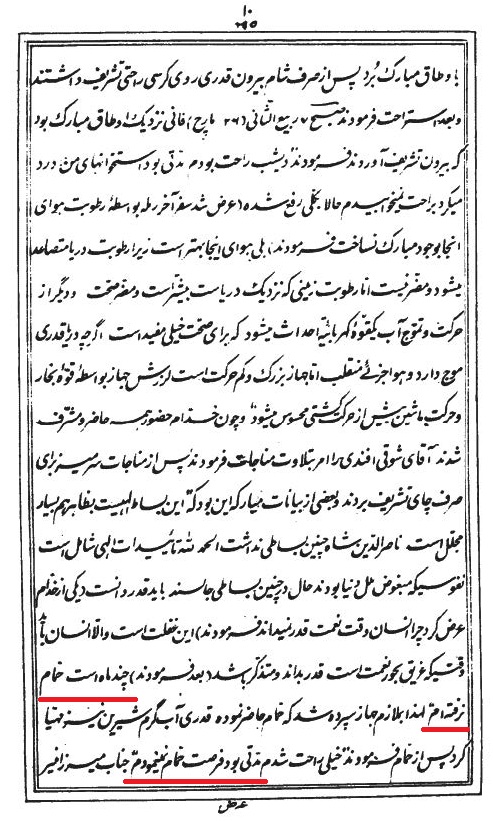 ۱۰
۲۹۵
باوطاق مبارک بُرد پس از صرف شام بیرون قدری روی کرسی راحتی تشریف داشتند
و بعد استراحت فرمودند صبح ۷ ربیع الثانی (۲۶ مارچ) فانی نزدیک اوطاق مبارک بود
که بیرون تشریف آوردند فرمودند دیشب راحت بودم مدتی بود استخوانهای من درد
میکرد براحت نمیخوابیدم حالا بکلی رفع شده (عرض شد سفر آخر رمله بواسطهٔ رطوبت هوای
انجا بوجود مبارک نساخت فرمودند) بلی هوای اینجا بهتر است زیرا رطوبت دریا متصاعد
میشود و مضر نیست اما رطوبت زمینی که نزدیک دریاست بیشتر است و مضر صحت و دیگر از
حرکت و تموج آب یکقوهٔ کهربائیه احداث میشود که برای صحت خیلی مفید است اگرچه دریا قدری
موج دارد و هوا جزئی منقلب اما جهاز بزرگ و کم حرکت است لرزش جهاز بواسطه قوهٔ بخار
و حرکت ماشین بیش از حرکت کشتی محسوس میشود و چون خدام حضور همه حاضر و مشرف
شدند آقای شوقی افندی را امر بتلاوت مناجات فرمودند پس از مناجات سر میز برای
صرف چای تشریف بردند و بعضی از بیانات مبارکه این بود که این بساط الهیست بظاهر هم بسیار
مجلل است ناصرالدین شاه چنین بساطی نداشت الحمد لله تأئیدات الهی شامل است
نفوسیکه مبغوض ملل دنیا بودند حال در چنین بساطی جالسند باید قدر دانست (یکی از خدام
عرض کرد چرا انسان وقت نعمت قدر نمیداند فرمودند) این غفلت است والا انسان باید
وقتیکه غریق بحور نعمت است قدر بداند و متذکر باشد (بعد فرمودند) چند ماه است حمام
نرفته‌ام لهذا بملازم جهاز سپرده شد که حمام حاضر نموده قدری آب گرم شیرین نیز مهیا
کرد پس از حمام فرمودند خیلی راحت شدم مدتی بود فرصت حمام نمینمودم جناب میرزا منیر
عرض